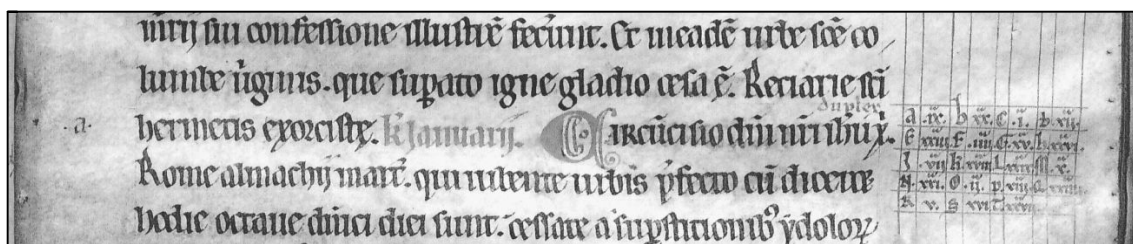 mrij sui confessione illustrē fecūnt. Et ī eadē urbe scē co
lumbe ūginis. que suꝑato igne gladio cesa ē. Reciarie sc̄i
duplex
.a. hermetis exorciste. kl' Januarij. Circūcisio dnī nr̄i ih̄u xp̄i.
Rome almachij marẗ. qui iubente urbis p̄fecto cū diceret
hodie octaue dn̄ici diei sunt. cessate a suꝑstitionibꝰ ydoloꝝ
a .ix. b xx. C .i. D .xii.
E xxiii F .iiii G .xv. h .xxvi.
I .vii k .xviii L .xxix M .x.
N .xxi. O .ii. p .xiii. Q .xxiiii.
R v. S xvi T xxvii